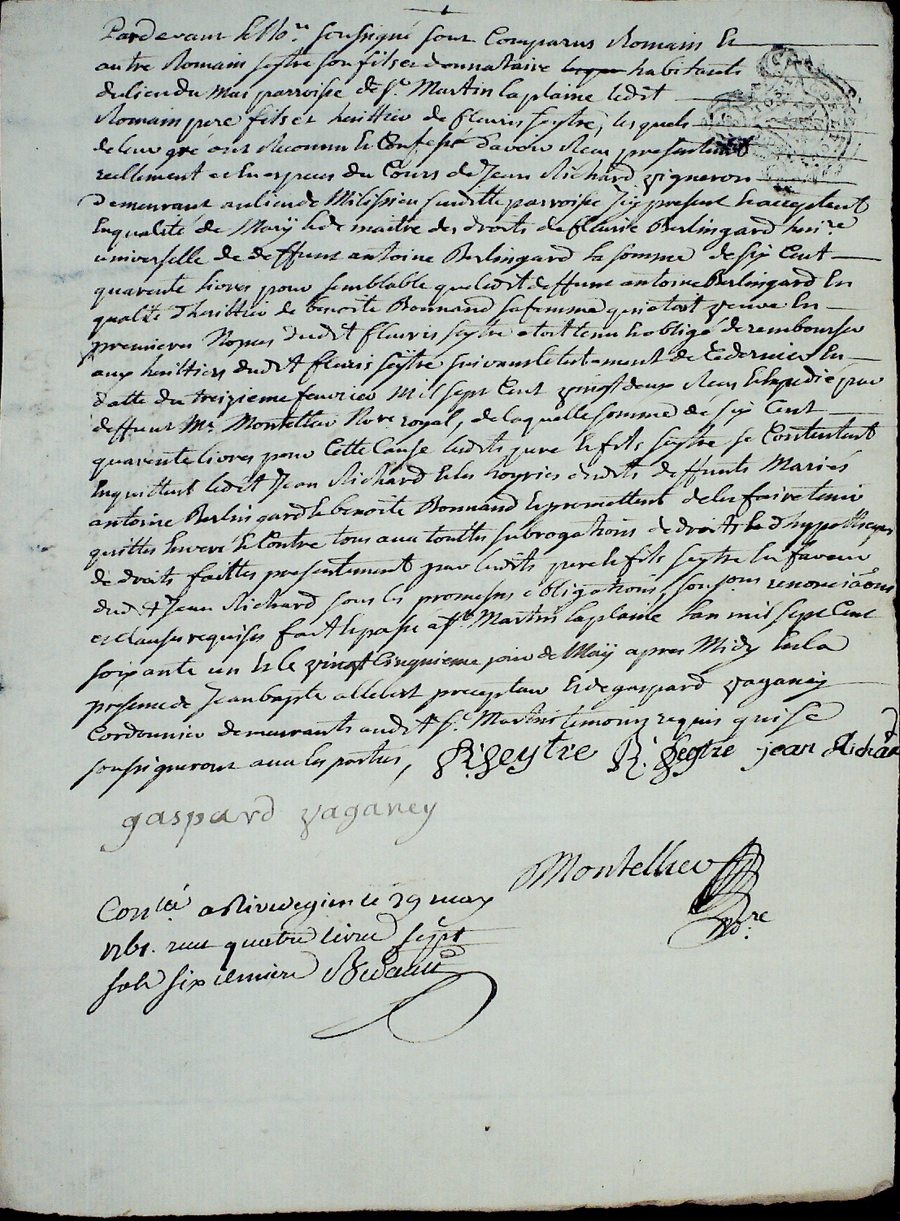 Pardevant le No.re soussigné sont Comparus Romain Et
autre Romain seytre son fils et donnataire habitants
du lieu du Mas parroisse de St. Martin la plaine ledit
Romain pere fils et heritier de fleuris seytre, lesquels
de leur gré ont Reconnu Et Confessé d'avoir Reçu presentement
reellement et En especes du Cours de Jean Richard vigneron
Demeurant au lieu de Milissieu susditte parroisse Icy present Et acceptant
En qualité de Mary Et de maitre des droits de fleurie Berlingard heri.re
universelle de deffunt antoine Berlingard la somme de six Cent
quarente livres pour semblable que ledit deffunt antoine Berlingard En
qualité d'heritier de benoite Bonnand sa femme qui etoit veuve En
premieres Nopces dudit fleuris seytre etoit tenu Et obligé de rembourser
aux heritiers dudit fleuris seytre suivant le testament de Ce dernier En
datte du treizieme fevrier Mil sept Cent vingt deux Reçu Et Expedié par
deffunt Me. Montellier No.re royal, de laquelle somme de six Cent
quarente livres pour Cette Cause lesdits pere Et fils seytre se Contentent
En quittent ledit Jean Richard Et les hoyries desdits deffunts Mariés
antoine Berlingard Et benoite Bonnand Et promettent de les faire tenir
quittes Envers Et Contre tous aux touttes subrogations de droits Et d'hypotheques
de droits faittes presentement par lesdits pere Et fils seytre En faveur
dudit Jean Richard sous les promesses obligations, soumis renonciaõns
et clauses requises fait Et passé a St. Martin la plaine l'an mil sept Cent
soixante un Et le vingt Cinquieme jour de May apres Midy En la
presence de Jean bapte allibert precepteur Et de gaspard vaganey
Cordonnier demeurants audit St. Martin temoins requis qui se
soussigneront avec les parties, R. Seytre R. Seytre jean Richard
gaspard vaganey
Montellier
No.re
Con.lé a Rivedegier le 29 may
1761. reçu quatre livres sept
sols six deniers